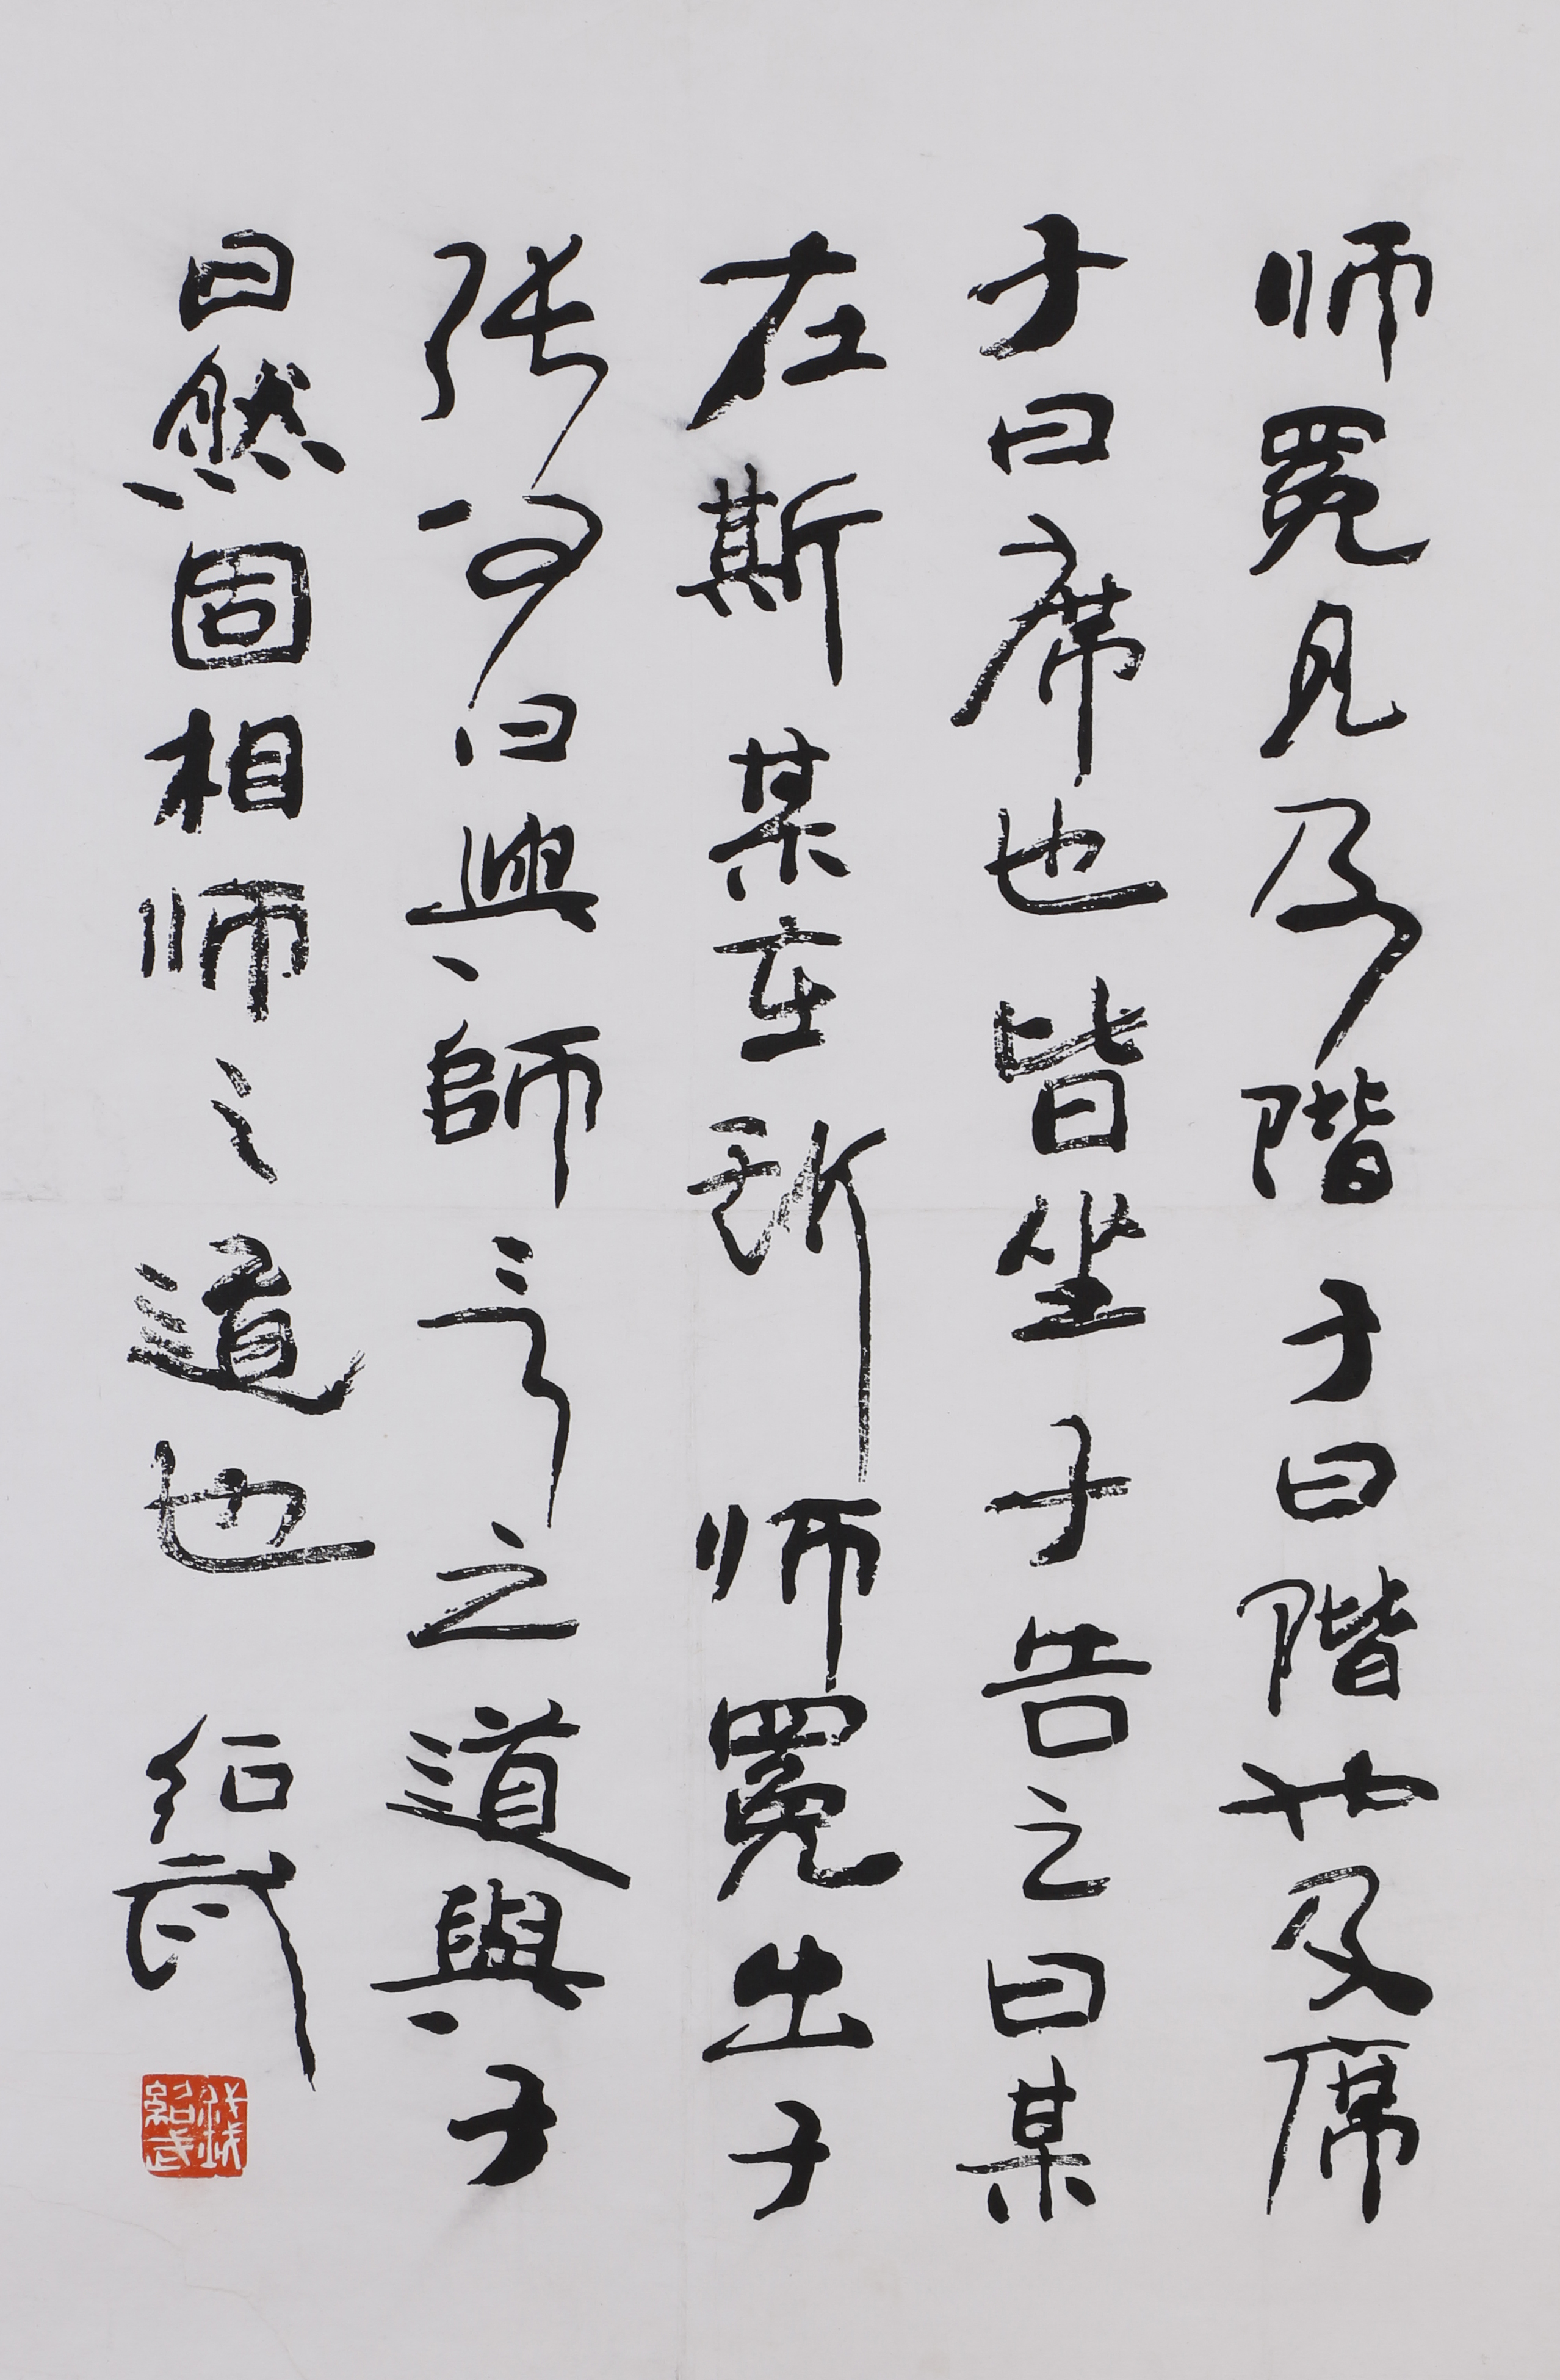 师冕见及階子曰階也及席
子曰席也皆坐子告之曰某
在斯某在斯师冕出子
张问曰與師言之道與子
曰然固相师之道也
绍武